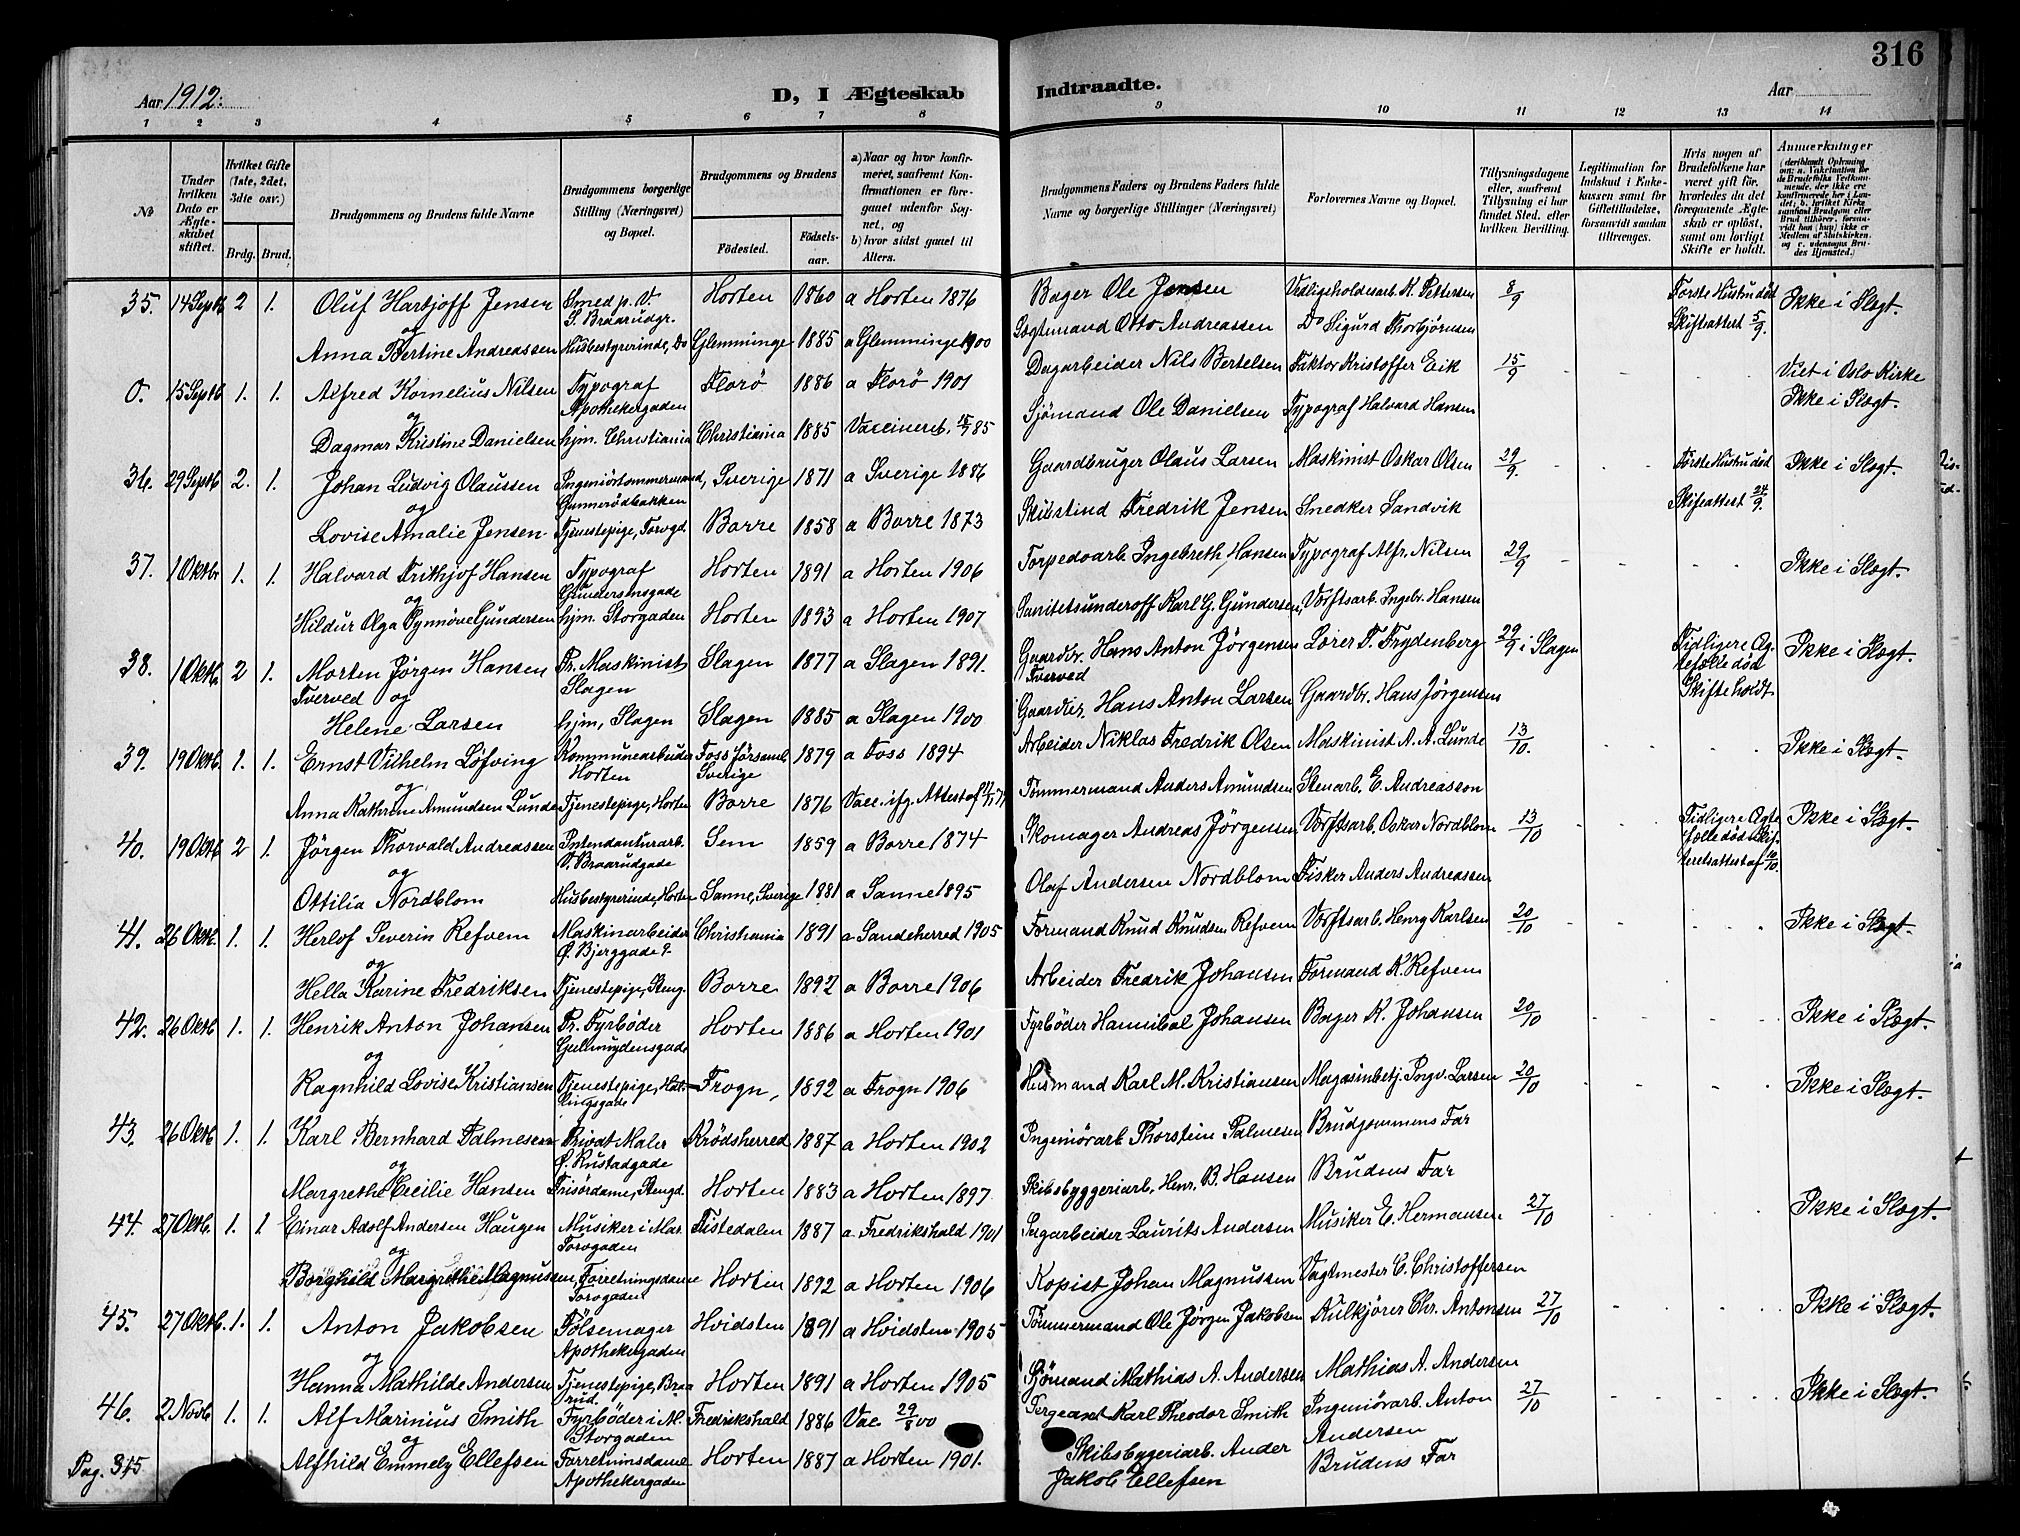 316
Aar 1912.
D, I Ægteskab Indtraadte.
Aar
1 2 3 4 5 6 7 8 9 10 11 12 13 14
No
Under hvilken Dato er Ægteskabet stiftet.
Hvilket Gifte (1ste, 2det, 3die osv.)
Brdg. Brud.
Brudgommens og Brudens fulde Navne
Brudgommens borgerlige Stilling (Næringsvei) og Bopæl.
Brudgommens og Brudens
Fødested.
Fødselsaar.
a) Naar og hvor konfirmeret, saafremt Konfirmationen er foregaaet udenfor Sognet, og
b) hvor sidst gaaet til Alters.
Brudgommens Faders og Brudens Faders fulde Navne og borgerlige Stillinger (Næringsvei)
Forlovernes Navne og Bopæl.
Tillysningsdagene eller, saafremt Tillysning ei har fundet Sted, efter hvilken Bevilling.
Legitimation for Indskud i Enkekassen samt for Giftetilladelse, forsaavidt saadan tiltrænges.
Hvis nogen af Brudefolkene har været gift før, hvorledes da det foregaaende Ægteskab er opløst, samt om lovligt Skifte er holdt.
Anmærkninger
35. 14 Septb 2 1. Oluf Hartjoff Jensen Smed p. V. Horten 1860 a Horten 1876 Bager Ole Jensen Vedligeholdesarb. K. Pettersen 8/9 Første Hustru død Ikke i Slægt.
og S. Braarudgr. Skifteattest 5/9.
Anna Bertine Andreassen Husbestyrerinde, Do Glemminge 1885 a Glemminge 1900 Sægtemand Otto Andreassen Do Sigurd Thorbjørnsen
0. 15 Septb 1. 1. Alfred Kornelius Nilsen Typograf Florø 1886 a Florø 1901 Dagarbeider Nils Bertelsen Faktor Kristoffer Eik 15/9 Viet i Oslo Kirke
og Apothekergaden Ikke i Slægt.
Dagmar Kristine Danielsen hjm. Christiania Christiania 1885 Vaccineret 85 Sjømand Ole Danielsen Typograf Halvard Hansen
36. 29 Septb 2. 1. Johan Ludvig Olaussen Ingeniørtommermand, Sverige 1871 a Sverige 1886 Gaardbruger Olaus Larsen Maskinist Oskar Olsen 29/9. Første Hustru død Ikke i Slægt.
og Gunnerødbakken Skifteattest 24/9.
Lovise Amalie Jensen Tjenestepige, Torvgd. Borre 1858 a Borre 1873 Skibstind Fredrik Jensen Snedker Sandvik
37. 1 Oktbr 1. 1. Halvard Frithjof Hansen Typograf Horten 1891 a Horten 1906 Torpedoarb. Ingebreth Hansen Typograf Alfr. Nilsen 29/9 Ikke i Slægt.
og Gundersensgade
Hildur Olga Synnøve Gundersen hjm. Storgaden Horten 1893 a Horten 1907 Sanitetsunderoff. Karl G. Gundersen, Vørftsarb. Ingebr. Hansen
38. 1 Oktb. 2 1. Morten Jørgen Hansen Pr. Maskinist Slagen 1877 a Slagen 1891. Gaardbr. Hans Anton Jørgensen Loser T. Frydenberg 29/9 i Slagen Tidligere Æg- Ikke i Slægt.
Tverved og Slagen Tverved tefælle død
Skifte holdt
Helene Larsen hjm, Slagen Slagen 1885 a Slagen 1900 Gaardbr. Hans Anton Larsen Gaardbr. Hans Jørgensen
39. 19 Oktb. 1. 1. Ernst Vilhelm Löfving Kommunearbeider Foss Jørsamb. 1879 a Foss 1894 Arbeider Niklas Fredrik Olsen Maskinist A. A. Lunde 13/10. Ikke i Slægt.
og Horten Sverige
Anna Kathrine Amundsen Lunde Tjenestepige, Horten Borre 1876 Vacc. ifg. Attest af Tømmermand Anders Amundsen Stenarb. E. Andreasson
40. 19 Oktb 2 1. Jørgen Thorvald Andreassen Intendanturarb. Sem 1859 a Borre 1874 Skomager Andreas Jørgensen Vørftsarb. Oskar Nordblom 13/10 Tidligere Ægte- Ikke i Slægt.
og V. Braarudgade fælle død Skif-
teretsattest af 10/10.
Ottilia Nordblom Husbestyrerinde, Horten Sanne, Sverige 1881 a Sanne 1895 Olaf Andersen Nordblom Fisker Anders Andreassen
41. 26 Oktb. 1. 1. Herlof Severin Refvem Maskinarbeider Christiania 1891 a Sandeherred 1905 Formand Knud Knudsen Refvem Vørftsarb. Henry Karlsen 20/10 Ikke i Slægt.
og Ø. Bjerggade
Hella Karine Fredriksen Tjenestepige, Steng. Borre 1892 a Borre 1906 Arbeider Fredrik Johansen Formand K. Refvem
42. 26 Oktb. 1. 1. Henrik Anton Johansen Pr. Fyrbøder Horten 1886 a Horten 1901 Fyrbøder Hannibal Johansen Bager K. Johansen 20/10 Ikke i Slægt.
og Gulmydensgade
Ragnhild Lovise Kristiansen Tjenestepige, Frogn, 1892 a Frogn 1906 Husmand Karl M. Kristiansen Magasinbetj. Ingv. Larsen 20/10 Ikke i Slægt.
43. 26 Oktb 1. 1. Karl Bernhard Palmesen Privat Maler Krødsherred 1887 a Horten 1902 Ingeniörarb Thorstein Palmesen Brudgommens Far
og Ø. Rustadgade
Margrethe Cecilie Hansen Frisørdame, Stengd. Horten 1883 a Horten 1897 Skibsbyggeriarb. Henr. B. Hansen Brudens Far
44. 27 Oktb. 1. 1. Einar Adolf Andersen Haugen Musiker i Mar. Tistedalen 1887 a Fredrikshald 1901 Sagarbeider Laurits Andersen Musiker E. Hermansen 27/10 Ikke i Slægt.
og Torvgaden
Borghild Margrethe Magnussen, Forretningsdame Horten 1892 a Horten 1906 Kopist Johan Magnussen Vagtmester C. Christoffersen
Torvgaden
45. 27 Oktb. 1. 1. Anton Jakobsen Pølsemager Hvidsten 1891 a Hvidsten 1905 Tømmermand Ole Jørgen Jakobsen Kulkjører Chr. Antonsen 27/10 Ikke i Slægt.
og Apothekergaden
Hanna Mathilde Andersen Tjenestepige, Braa- Horten 1891 a Horten 1905 Sjømand Mathias A. Andersen Mathias A. Andersen
rud.
46. 2 Novb 1. 1. Alf Marinius Smith Fyrbøder i M. Fredrikshald 1886 Vac 29/8 00 Sergeant Karl Theodor Smith Ingeniörarb. Anton 27/10 Ikke i Slægt.
og Storgaden Andersen
Alfhild Emmely Ellefsen Forretninsdame Horten 1887 a Horten 1901. Skibsbygeriarb. Ander Brudens Far
Apothekergaden Jakob Ellefsen
Pag. 315